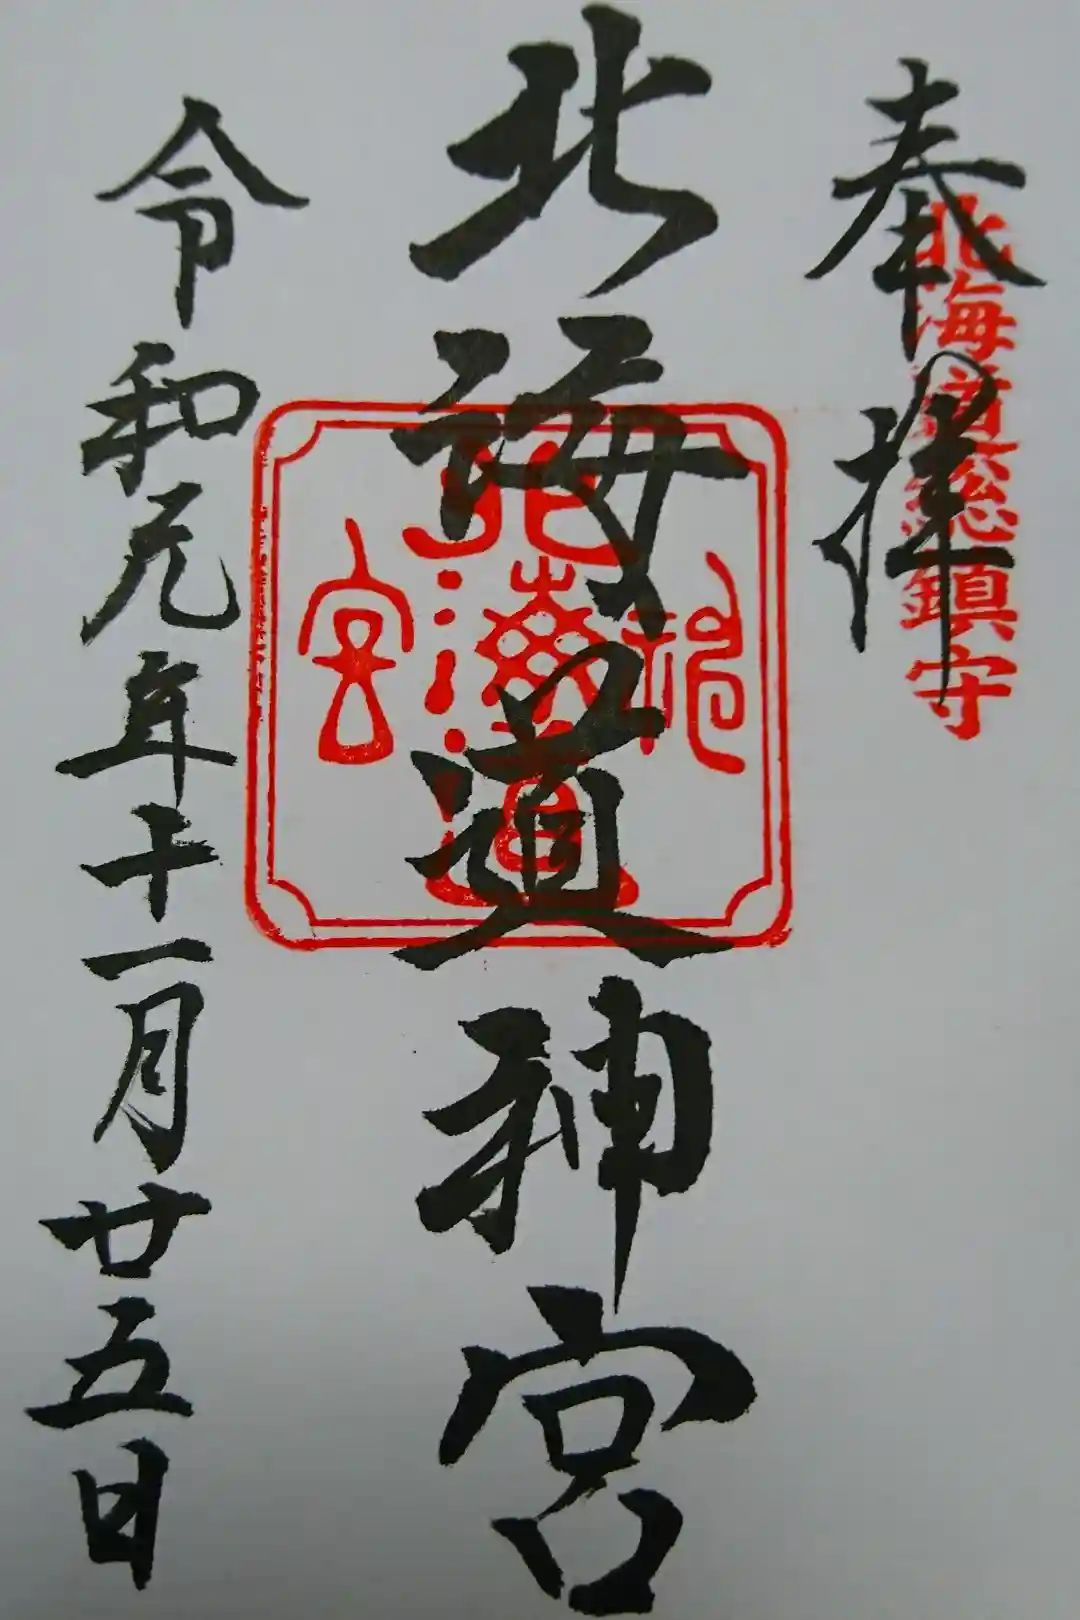 奉拝
北海道総鎮守
北海道神宮
北海道神宮
令和元年十一月廿五日